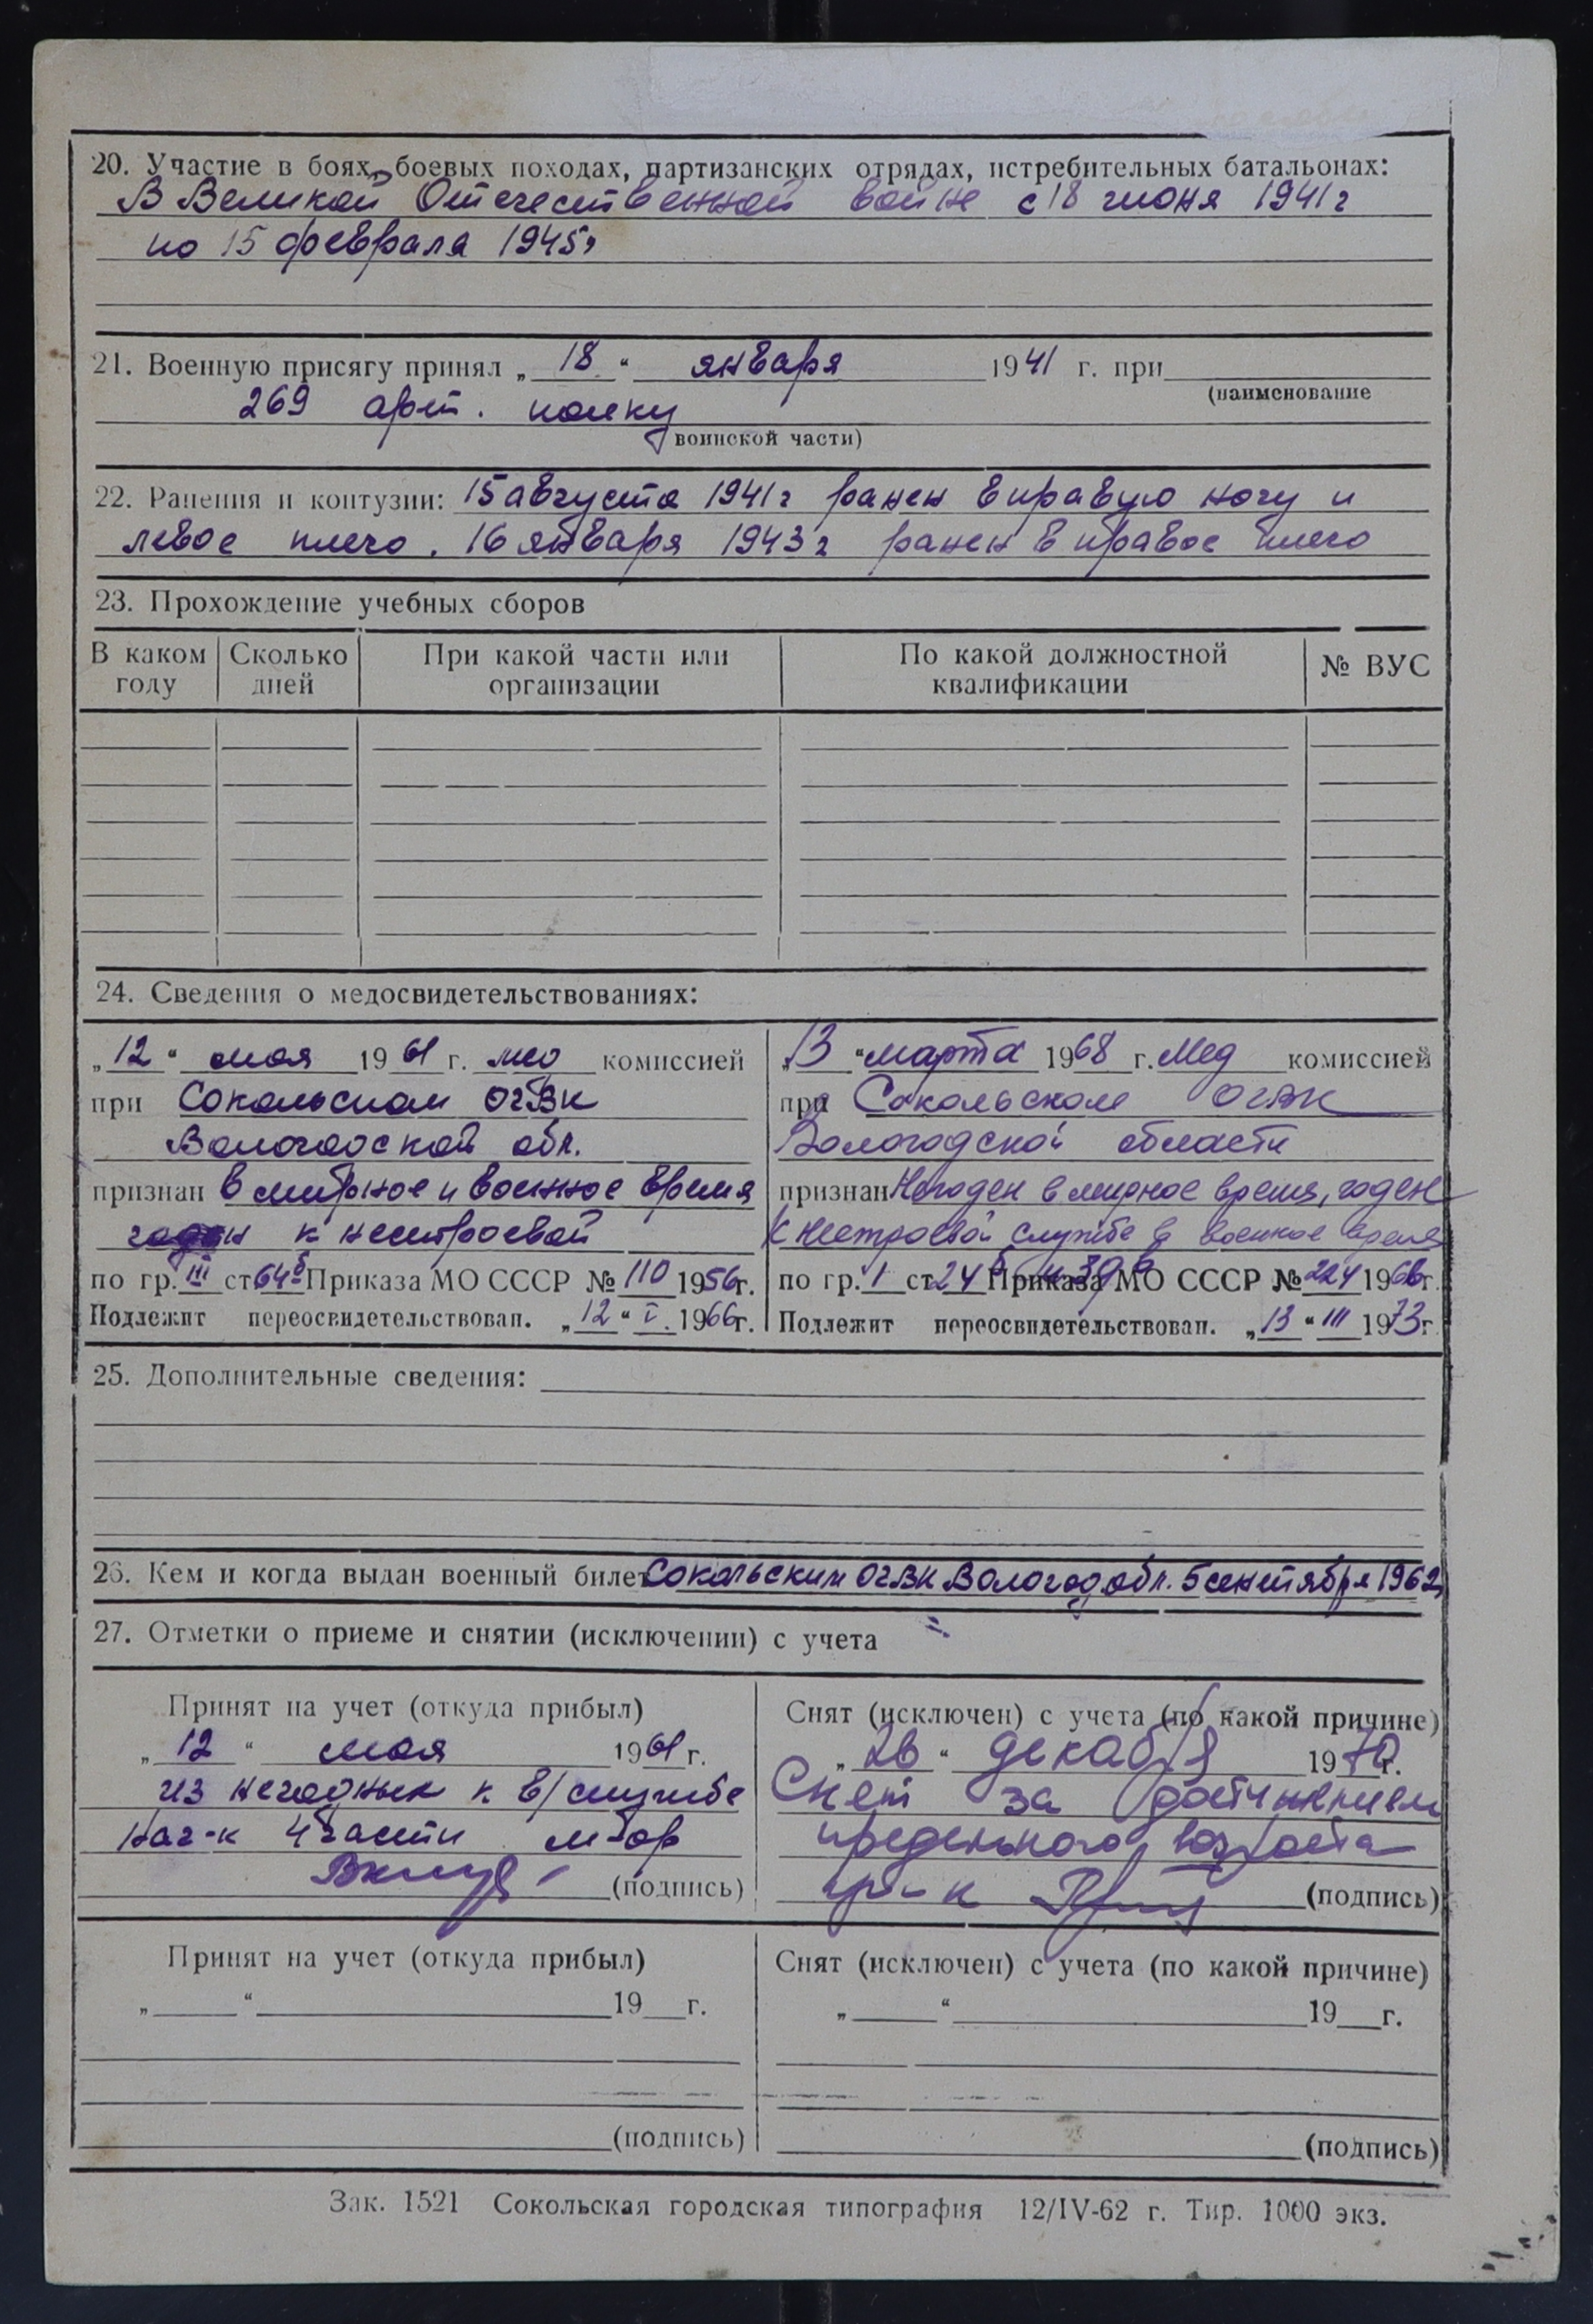 20. Участие в боях, боевых походах, партизанских отрядах, истребительных батальонах:
В Великой Отечественной войне с 18 июня 1941 г
по 15 февраля 1945г
21. Военную присягу принял „ 18 “ января 1941 г. при
(наименование
269 арт. полку
воинской части)
22. Ранения и контузии: 15 августа 1941 г ранен в правую ногу и
левое плечо. 16 января 1943 г ранен в правое плечо
23. Прохождение учебных сборов
В каком году | Сколько дней | При какой части или организации | По какой должностной квалификации | № ВУС
24. Сведения о медосвидетельствованиях:
„ 12 “ мая 1961 г. мед комиссией
при Сокольском ОГВК
Вологодской обл.
признан в мирное и военное время
годен к нестроевой
по гр. III ст 64б Приказа МО СССР № 110 1956г.
Подлежит переосвидетельствован. „ 12 “ V. 1966г.
„ 13 “ марта 1968 г. Мед комиссией
при Сокольском ОГВК
Вологодской области
признан Негоден в мирное время, годен
к нестроевой службе в военное время
по гр. I ст. 24б и 39в Приказа МО СССР № 224 1966г.
Подлежит переосвидетельствован. „ 13 “ III 1973г.
25. Дополнительные сведения:
26. Кем и когда выдан военный билет Сокольским ОГВК Вологод. обл. 5 сентября 1962г
27. Отметки о приеме и снятии (исключении) с учета
Принят на учет (откуда прибыл)
„ 12 “ мая 1961 г.
из негодных к в/службе
Нач-к 4 части м-ор
(подпись)
Снят (исключен) с учета (по какой причине)
„ 26 “ декабря 1970г.
Снят за достижением
предельного возраста
(подпись)
Принят на учет (откуда прибыл)
„ “ 19 г.
(подпись)
Снят (исключен) с учета (по какой причине)
„ “ 19 г.
(подпись)
Зак. 1521 Сокольская городская типография 12/IV-62 г. Тир. 1000 экз.